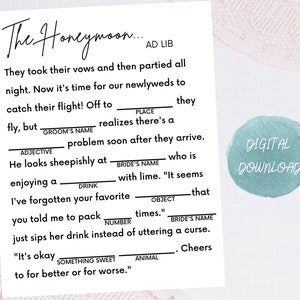 The Honeymoon... AD LIB
They took their vows and then partied all
night. Now it's time for our newlyweds to
catch their flight! Off to ________ they
PLACE
fly, but ________ realizes there's a
GROOM'S NAME
________ problem soon after they arrive.
ADJECTIVE
He looks sheepishly at ________ who is
BRIDE'S NAME
enjoying a ________ with lime. "It seems
DRINK
I've forgotten your favorite ________ that
OBJECT
you told me to pack ________ times." ________
NUMBER BRIDE'S NAME
just sips her drink instead of uttering a curse.
"It's okay ________ ________. Cheers
SOMETHING SWEET ANIMAL
to for better or for worse."
DIGITAL
DOWNLOAD